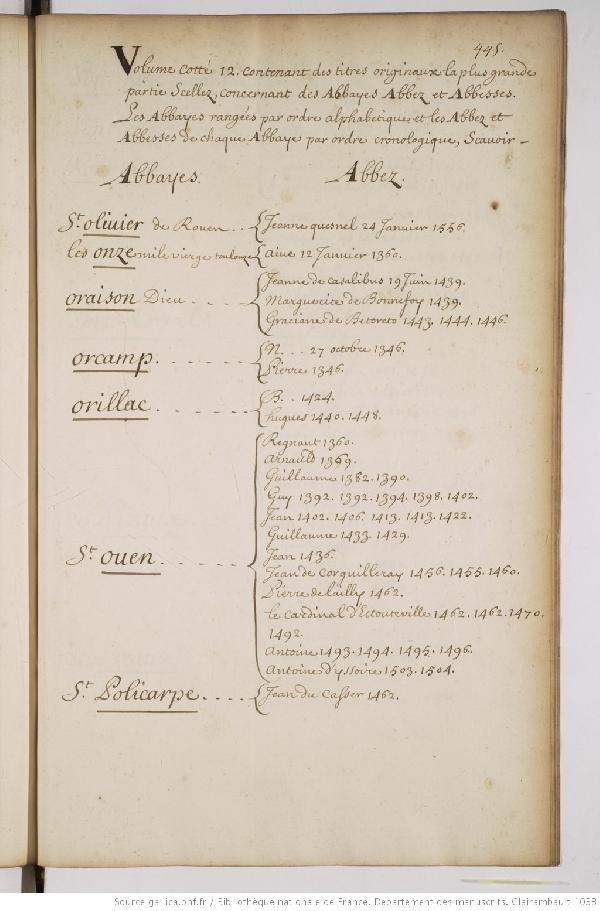 445.
Volume cotté 12. contenant des titres originaux la plus grande
partie Scellez, concernant des Abbayes Abbez et Abbesses.
Les Abbayes rangées par ordre alphabetique et les Abbez et
Abbesses de chaque Abbaye par ordre cronologique, Scavoir -
Abbayes. Abbez.
St. olivier de Rouen . . Jeanne quesnel 24 Janvier 1556.
les onze mile vierge toulouze aive 12 Janvier 1360.
Jeanne de Casalibus 19 Juin 1439.
oraison Dieu . . . . Marguerite de Bonnefoy 1439.
Graciane de Betoreto 1443. 1444. 1446.
orcamp. . . . . . N. . . 27 octobre 1346.
Pierre 1346.
orillac . . . . . . B. . 1424.
hugues 1440. 1448.
Regnaut 1360.
Arnauld 1369.
Guillaume 1382. 1390.
Guy 1392. 1392. 1394. 1398. 1402.
Jean 1402. 1406. 1413. 1413. 1422.
Guillaume 1433. 1429.
Jean 1436.
St. ouen . . . . . . Jean de Corquilleray 1456. 1455. 1460.
Pierre de lailly 1462.
Le Cardinal d'Estouteville 1462. 1462. 1470.
1492.
Antoine 1493. 1494. 1495. 1496.
Antoine d'yssoire 1503. 1504.
St. Policarpe . . . . Jean du Casser 1462.
Source gallica.bnf.fr / Bibliothèque nationale de France. Département des manuscrits. Clairambault 1038